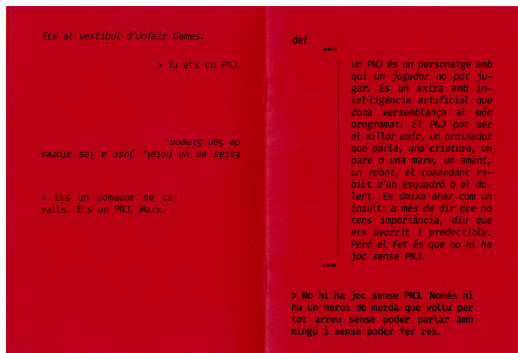 Ets al vestíbul d'Unfair Games.
> Tu ets un PNJ.
Estàs en un hotel, just a les afores
de San Simeon.
> Ets un domador de ca-
valls. Ets un PNJ, Marx.
def
"""
un PNJ és un personatge amb
qui un jugador no pot ju-
gar. És un extra amb in-
tel·ligència artificial que
dona versemblança al món
programat. El PNJ pot ser
el millor amic, un ordinador
que parla, una criatura, un
pare o una mare, un amant,
un robot, el comandant ra-
biüt d'un esquadró o el do-
lent. Es deixa anar com un
insult: a més de dir que no
tens importància, diu que
ets avorrit i predectible.
Però el fet és que no hi ha
joc sense PNJ.
"""
> No hi ha joc sense PNJ. Només hi
ha un heroi de merda que volta per
tot arreu sense poder parlar amb
ningú i sense poder fer res.